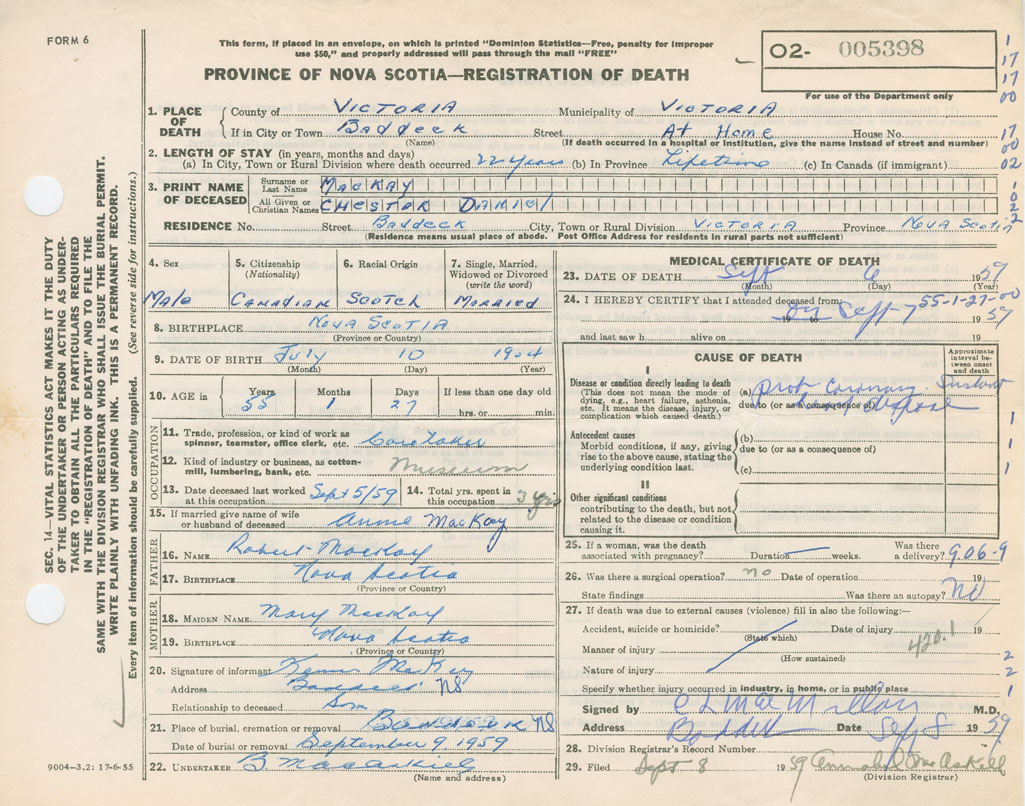 FORM 6
This form, if placed in an envelope, on which is printed "Dominion Statistics—Free, penalty for improper
use $50," and properly addressed will pass through the mail "FREE"
PROVINCE OF NOVA SCOTIA—REGISTRATION OF DEATH
O2- 005398
For use of the Department only
1
17
17
00
17
00
02
1
0
2
2
SEC. 14—VITAL STATISTICS ACT MAKES IT THE DUTY
OF THE UNDERTAKER OR PERSON ACTING AS UNDER-
TAKER TO OBTAIN ALL THE PARTICULARS REQUIRED
IN THE "REGISTRATION OF DEATH" AND TO FILE THE
SAME WITH THE DIVISION REGISTRAR WHO SHALL ISSUE THE BURIAL PERMIT.
WRITE PLAINLY WITH UNFADING INK. THIS IS A PERMANENT RECORD.
Every item of information should be carefully supplied. (See reverse side for instructions.)
1. PLACE OF DEATH County of VICTORIA Municipality of VICTORIA
If in City or Town Baddeck Street At Home House No.
(Name) (If death occurred in a hospital or institution, give the name instead of street and number)
2. LENGTH OF STAY (in years, months and days)
(a) In City, Town or Rural Division where death occurred 22 years (b) In Province Lifetime (c) In Canada (if immigrant)
3. PRINT NAME OF DECEASED Surname or Last Name MacKAY
All Given or Christian Names CHESTER DANIEL
RESIDENCE No. Street Baddeck City, Town or Rural Division VICTORIA Province Nova Scotia
(Residence means usual place of abode. Post Office Address for residents in rural parts not sufficient)
4. Sex Male
5. Citizenship (Nationality) Canadian
6. Racial Origin Scotch
7. Single, Married, Widowed or Divorced (write the word) Married
8. BIRTHPLACE Nova Scotia
(Province or Country)
9. DATE OF BIRTH July 10 1904
(Month) (Day) (Year)
10. AGE in Years 55 Months 1 Days 27 If less than one day old
hrs. or min.
OCCUPATION
11. Trade, profession, or kind of work as
spinner, teamster, office clerk, etc. Caretaker
12. Kind of industry or business, as cotton-
mill, lumbering, bank, etc. Museum
13. Date deceased last worked
at this occupation Sept 5/59
14. Total yrs. spent in
this occupation 3 yrs
15. If married give name of wife
or husband of deceased Annie MacKay
FATHER
16. NAME Robert MacKay
17. BIRTHPLACE Nova Scotia
(Province or Country)
MOTHER
18. MAIDEN NAME Mary MacKay
19. BIRTHPLACE Nova Scotia
(Province or Country)
20. Signature of informant MacKay
Address Baddeck NS
Relationship to deceased Son
21. Place of burial, cremation or removal Baddeck NS
Date of burial or removal September 9, 1959
22. UNDERTAKER B. MacAskill
(Name and address)
9004—3.2: 17-6-55
MEDICAL CERTIFICATE OF DEATH
23. DATE OF DEATH Sept 6 1959
(Month) (Day) (Year)
24. I HEREBY CERTIFY that I attended deceased from 55-1-27-00
19 to Sept 7 1959
and last saw h alive on 19
CAUSE OF DEATH
Approximate interval between onset and death
I
Disease or condition directly leading to death
(This does not mean the mode of
dying, e.g., heart failure, asthenia,
etc. It means the disease, injury, or
complication which caused death.)
(a) Prob Coronary
due to (or as a consequence of)
Antecedent causes
Morbid conditions, if any, giving
rise to the above cause, stating the
underlying condition last.
(b)
due to (or as a consequence of)
(c)
II
Other significant conditions
contributing to the death, but not
related to the disease or condition
causing it.
1
1
1
25. If a woman, was the death
associated with pregnancy? Duration weeks. Was there
a delivery? 906-9
26. Was there a surgical operation? no Date of operation 19
State findings Was there an autopsy? NO
27. If death was due to external causes (violence) fill in also the following:—
Accident, suicide or homicide? Date of injury 19
(State which)
Manner of injury 420.1
(How sustained)
Nature of injury
Specify whether injury occurred in industry, in home, or in public place
2
2
1
Signed by C L MacMillan M.D.
Address Baddeck Date Sept 8 1959
28. Division Registrar's Record Number
29. Filed Sept 8 1959 MacAskill
(Division Registrar)